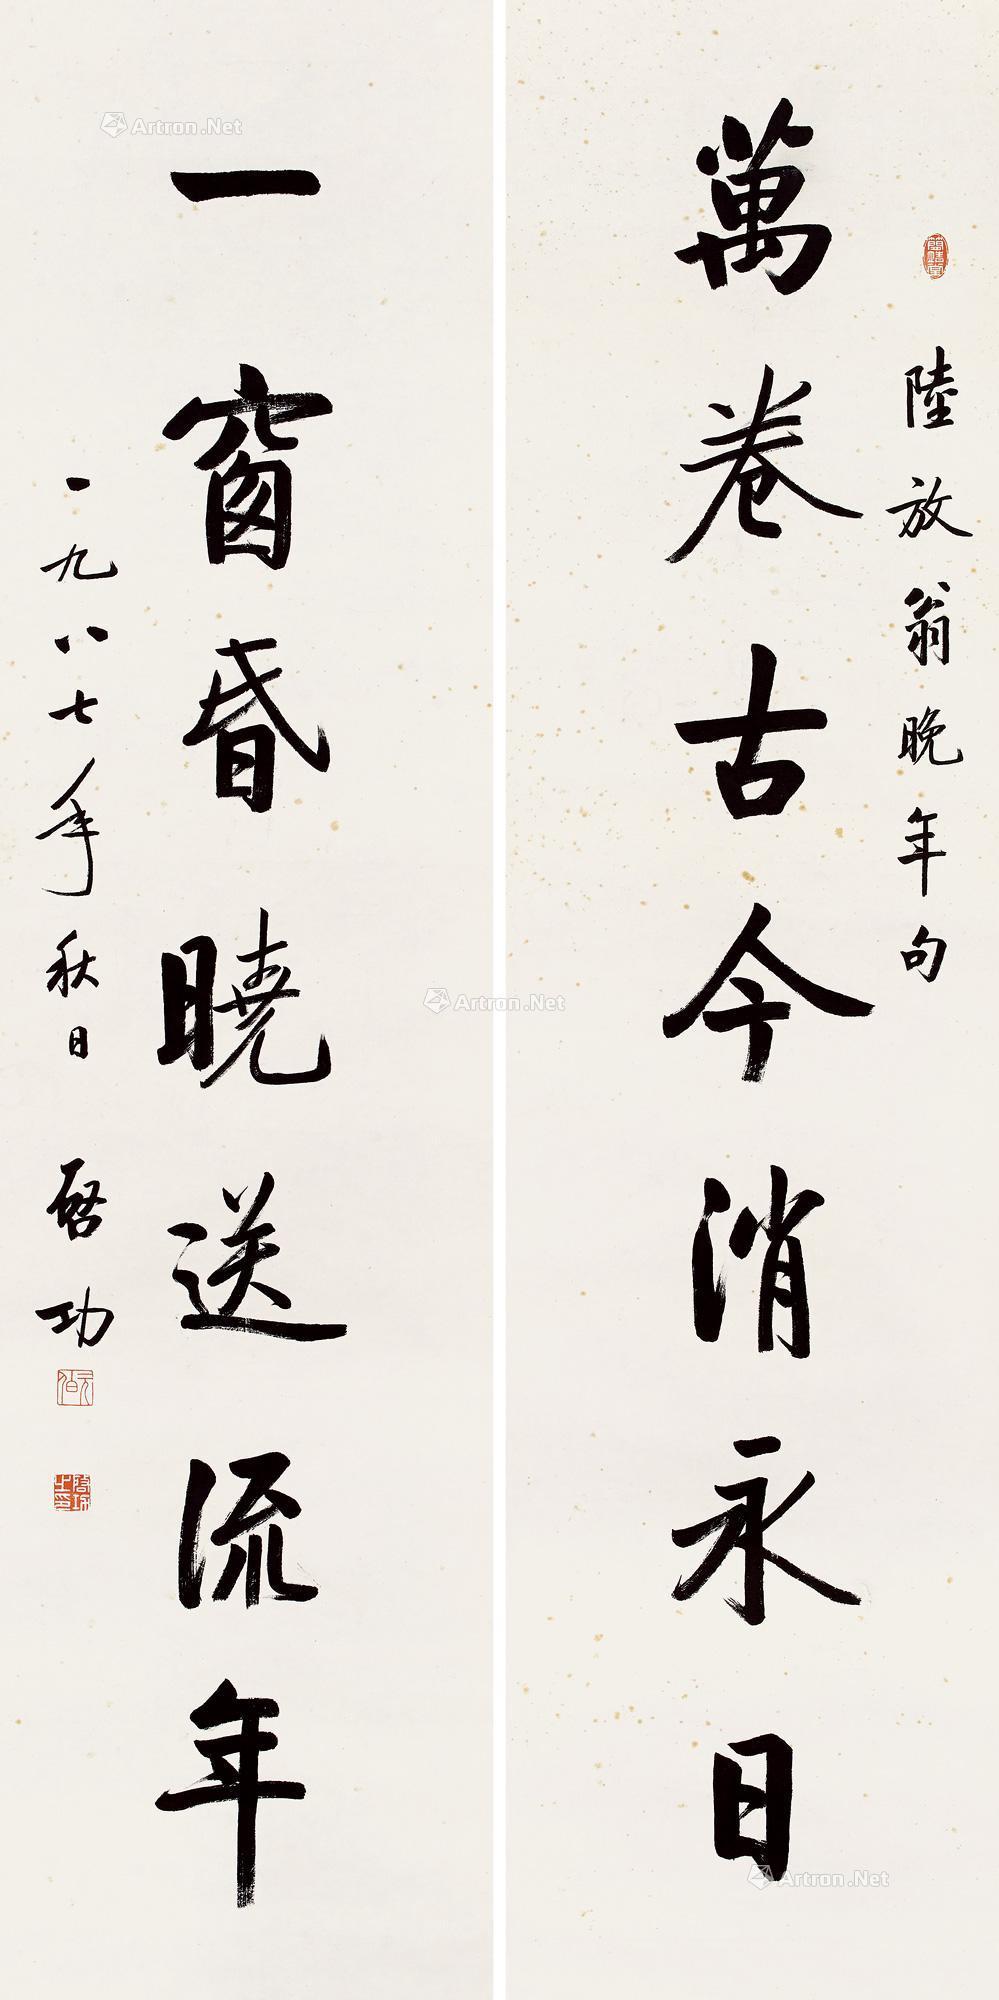 陸放翁晚年句
萬卷古今消永日
一窗昏曉送流年
一九八七年秋日 啓功
Artron.Net
Artron.Net
Artron.Net